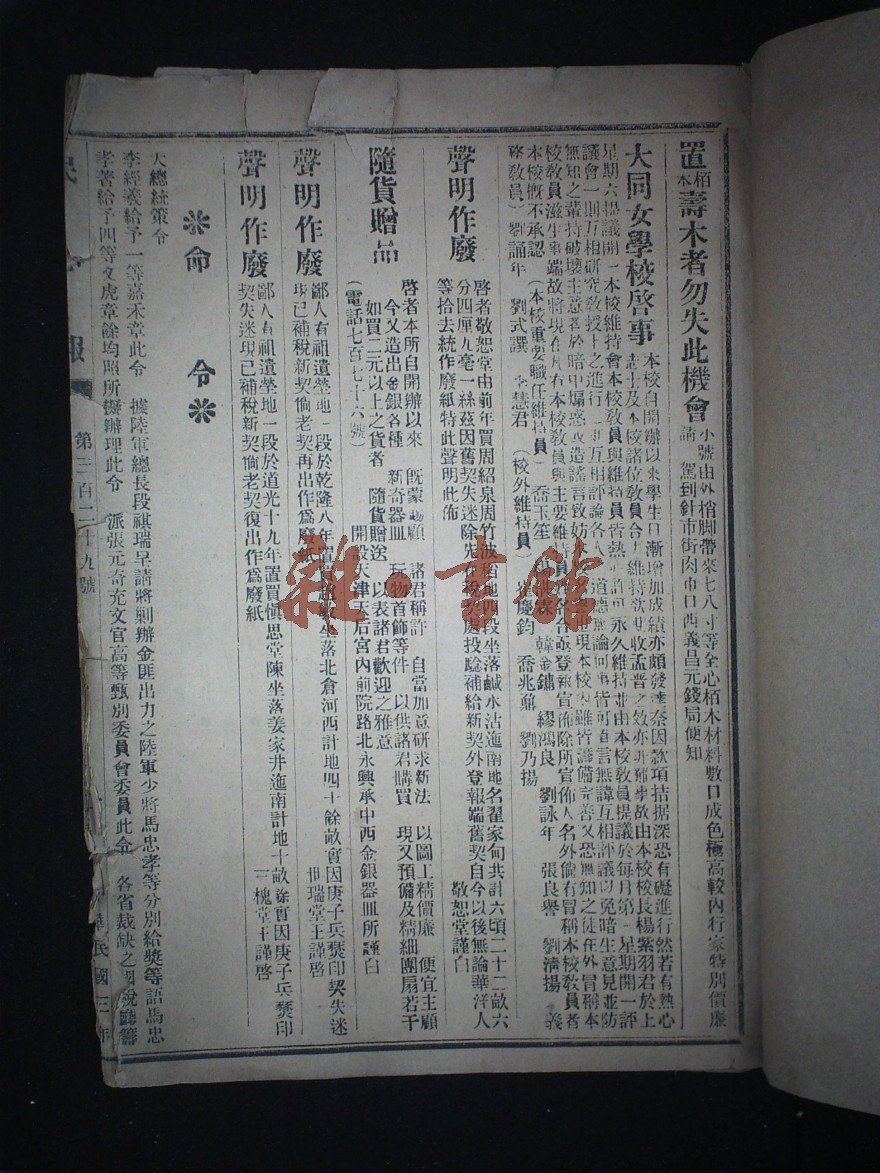 置柏木壽木者勿失此機會
小號由外梢脚帶來七八寸等全心栢木材料數口成色極高較內行家特別價廉
請 駕到針市街肉市口西義昌元錢局便知
大同女學校啓事
本校自開辦以來學生日漸增加成績亦頗發達奈因款項拮据深恐有礙進行然若有熱心
志士及本校諸位教員合力維持故由本校校長楊紫羽君於上
星期六提議開一本校維持會本校教員與維持員皆熱心許可永久維持並由本校教員提議於每月第一星期開一評
議會一則互相研究教授上之進行一則互相評論各人之道德無論何事皆可直言無諱互相評議以免暗生意見並防
無知之輩持破壞主意者於暗中煽惑改造謠言致妨本校現本校內雖皆籌備完善又恐無知之徒在外冒稱本
校教員滋生事端故將現在凡有本校教員與主要維持員姓名各亟登報宣佈除所宣佈人名外倘有冒稱本校教員者
本校概不承認 (本校重要職任維持員) 喬玉笙 韓金鏞 繆鴻良 劉詠年 張良譽 劉濤揚 義
務教員) 劉誦年 劉式譔 李慧君 (校外維持員) 慶鈞 喬兆鼐 劉乃揚
聲明作廢
啓者敬恕堂由前年買周紹泉周竹波稻地四段坐落鹹水沽迤南地名翟家甸共計六頃二十二畝六
分四厘九毫一絲茲因舊契失迷除先在稅契處投驗補給新契外登報端舊契自今以後無論華洋人
等拾去統作廢紙特此聲明此佈 敬恕堂謹白
隨貨贈品
啓者本所自開辦以來 既蒙賜顧 諸君稱許 自當加意研求新法 以圖工精價廉 便宜主顧
今又造出金銀各種 新奇器皿 玩物首飾等件 以供諸君購買 現又預備及精細團扇若干
如買二元以上之貨者 隨貨贈送 以表諸君歡迎之雅意
(電話七百七十六號) 開設天津天后宮內前院路北永興承中西金銀器皿所謹白
聲明作廢
鄙人有祖遺塋地一段於乾隆八年置買坐落北倉河西計地四十餘畝實因庚子兵燹印契失迷
現已補稅新契倘老契再出作爲廢紙 世瑞堂王謹啓
聲明作廢
鄙人有祖遺塋地一段於道光十九年置買愼思堂陳坐落姜家井迤南計地十畝餘實因庚子兵燹印
契失迷現已補稅新契倘老契復出作爲廢紙 三槐堂王謹啓
命 令
大總統策令
李經羲給予一等嘉禾章此令 據陸軍總長段祺瑞呈請將剿辦金匪出力之陸軍少將馬忠孝等分別給獎等語馬忠
孝著給予四等文虎章餘均照所擬辦理此令 派張元奇充文官高等甄別委員會委員此令 各省裁缺之國稅廳籌
報 第三百二十九號 華民國三年
雜·書館